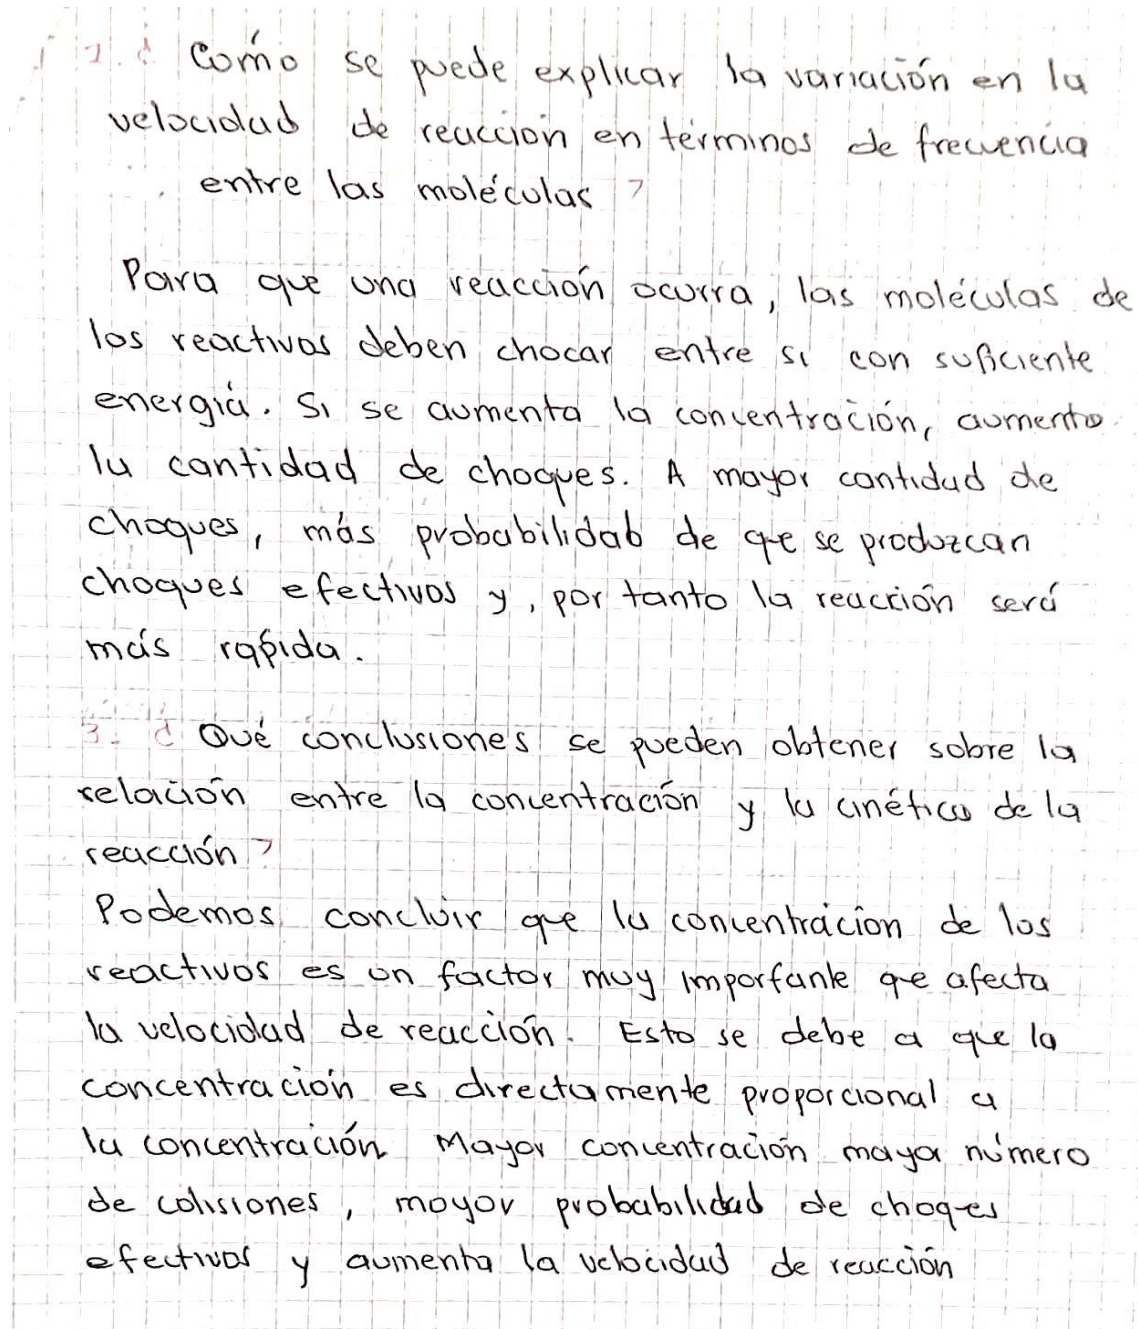 1. ¿ Cómo se puede explicar la variación en la
velocidad de reacción en términos de frecuencia
entre las moléculas ?
Para que una reacción ocurra, las moléculas de
los reactivos deben chocar entre si con suficiente
energía. Si se aumenta la concentración, aumenta
la cantidad de choques. A mayor cantidad de
choques, más probabilidad de que se produzcan
choques efectivos y, por tanto la reacción será
más rápida.
3. ¿ Qué conclusiones se pueden obtener sobre la
relación entre la concentración y la cinética de la
reacción ?
Podemos concluir que la concentración de los
reactivos es un factor muy importante que afecta
la velocidad de reacción. Esto se debe a que la
concentración es directamente proporcional a
la concentración Mayor concentración mayor número
de colisiones, mayor probabilidad de choques
efectivos y aumenta la velocidad de reacción